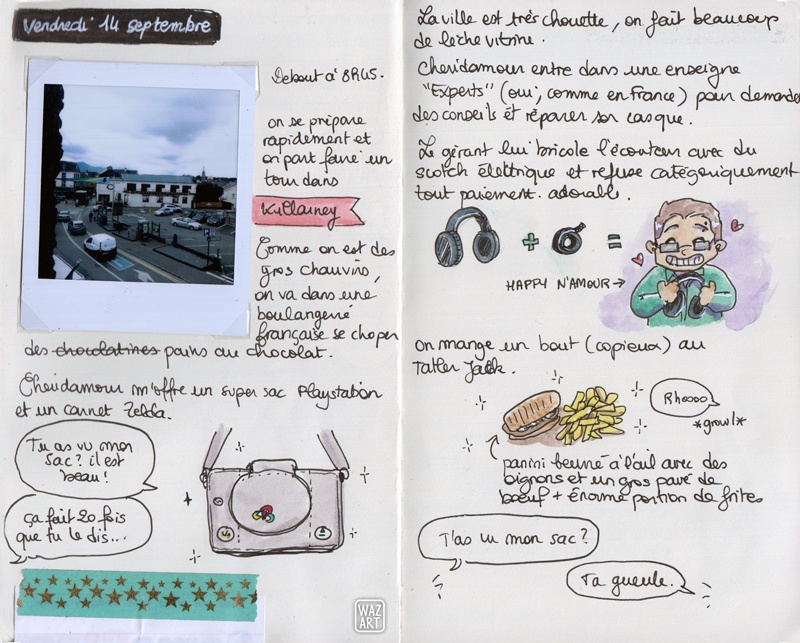 Vendredi 14 septembre
Debout à 8h45.
on se prépare
rapidement et
on part faire un
tour dans
Killarney
Comme on est des
gros chauvins,
on va dans une
boulangerie
française se choper
des chocolatines pains au chocolat.
Cheridamour m'offre un super sac Playstation
et un carnet Zelda.
Tu as vu mon
sac? il est
beau!
ça fait 20 fois
que tu le dis...
La ville est très chouette, on fait beaucoup
de lèche vitrine.
Cheridamour entre dans une enseigne
"Experts" (oui, comme en France) pour demander
des conseils et réparer son casque.
Le gérant lui bricole l'écouteur avec du
scotch électrique et refuse catégoriquement
tout paiement. adorable.
+ =
HAPPY N'AMOUR →
on mange un bout (copieux) au
Tatler Jack.
Rhoooo
*growl*
panini beurré à l'ail avec des
oignons et un gros pavé de
bœuf + énorme portion de frites
T'as vu mon sac?
Ta gueule.
WAZ
ART